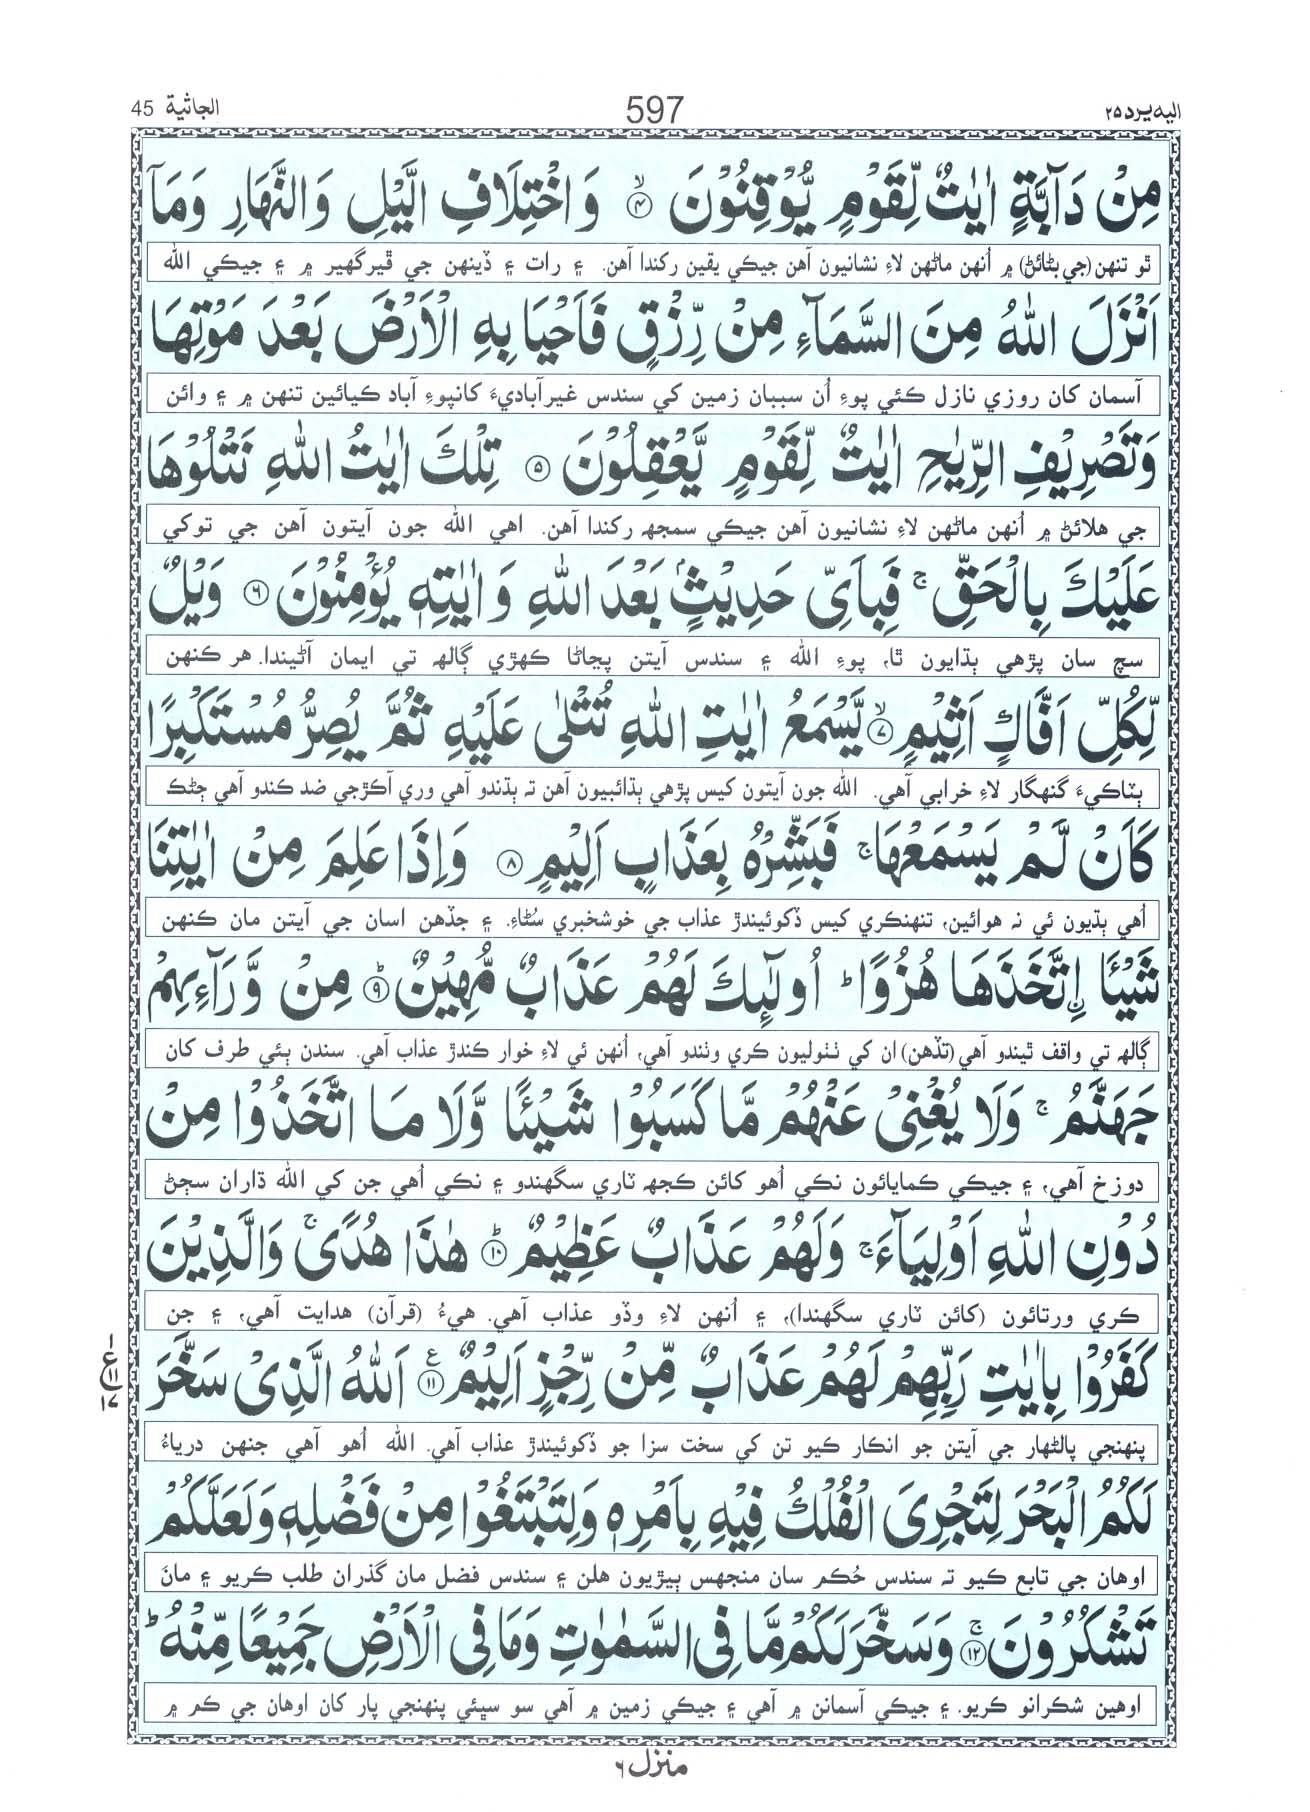 اليه يرد ٢٥
597
الجاثية 45
مِنْ دَآبَّةٍ اٰيٰتٌ لِّقَوْمٍ يُّوْقِنُوْنَ ۙ﴿۴﴾ وَاخْتِلَافِ الَّيْلِ وَالنَّهَارِ وَمَآ
ٿو تنهن (جي بڻائڻ) ۾ اُنهن ماڻهن لاءِ نشانيون آهن جيڪي يقين رکندا آهن. ۽ رات ۽ ڏينهن جي ڦيرگهير ۾ ۽ جيڪي الله
اَنْزَلَ اللّٰهُ مِنَ السَّمَآءِ مِنْ رِّزْقٍ فَاَحْيَا بِهِ الْاَرْضَ بَعْدَ مَوْتِهَا
آسمان کان روزي نازل ڪئي پوءِ اُن سببان زمين کي سندس غيرآباديءَ کانپوءِ آباد ڪيائين تنهن ۾ ۽ وائن
وَتَصْرِيْفِ الرِّيٰحِ اٰيٰتٌ لِّقَوْمٍ يَّعْقِلُوْنَ ﴿۵﴾ تِلْكَ اٰيٰتُ اللّٰهِ نَتْلُوْهَا
جي هلائڻ ۾ اُنهن ماڻهن لاءِ نشانيون آهن جيڪي سمجهه رکندا آهن. اهي الله جون آيتون آهن جي توکي
عَلَيْكَ بِالْحَقِّ ۚ فَبِاَيِّ حَدِيْثٍۭ بَعْدَ اللّٰهِ وَاٰيٰتِهٖ يُؤْمِنُوْنَ ﴿۶﴾ وَيْلٌ
سچ سان پڙهي ٻڌايون ٿا، پوءِ الله ۽ سندس آيتن پڄاڻا ڪهڙي ڳالهه تي ايمان آڻيندا. هر ڪنهن
لِّكُلِّ اَفَّاكٍ اَثِيْمٍ ۙ﴿۷﴾ يَّسْمَعُ اٰيٰتِ اللّٰهِ تُتْلٰى عَلَيْهِ ثُمَّ يُصِرُّ مُسْتَكْبِرًا
ٻٽاڪيءَ گنهگار لاءِ خرابي آهي. الله جون آيتون کيس پڙهي ٻڌائبيون آهن ته ٻڌندو آهي وري آڪڙجي ضد ڪندو آهي ڄڻڪ
كَاَنْ لَّمْ يَسْمَعْهَا ۚ فَبَشِّرْهُ بِعَذَابٍ اَلِيْمٍ ﴿۸﴾ وَاِذَا عَلِمَ مِنْ اٰيٰتِنَا
اُهي ٻڌيون ئي نه هوائين، تنهنڪري کيس ڏکوئيندڙ عذاب جي خوشخبري سُڻاءِ. ۽ جڏهن اسان جي آيتن مان ڪنهن
شَيْـًٔا اۨتَّخَذَهَا هُزُوًا ؕ اُولٰٓئِكَ لَهُمْ عَذَابٌ مُّهِيْنٌ ؕ﴿۹﴾ مِنْ وَّرَآءِهِمْ
ڳالهه تي واقف ٿيندو آهي (تڏهن) ان کي ٺٺوليون ڪري وٺندو آهي، اُنهن ئي لاءِ خوار ڪندڙ عذاب آهي. سندن ٻئي طرف کان
جَهَنَّمُ ۚ وَلَا يُغْنِيْ عَنْهُمْ مَّا كَسَبُوْا شَيْـًٔا وَّلَا مَا اتَّخَذُوْا مِنْ
دوزخ آهي، ۽ جيڪي ڪمايائون نڪي اُهو کائن ڪجهه ٽاري سگهندو ۽ نڪي اُهي جن کي الله ڌاران سڄڻ
دُوْنِ اللّٰهِ اَوْلِيَآءَ ۚ وَلَهُمْ عَذَابٌ عَظِيْمٌ ؕ﴿۱۰﴾ هٰذَا هُدًى ۚ وَالَّذِيْنَ
ڪري ورتائون (کائن ٽاري سگهندا)، ۽ اُنهن لاءِ وڏو عذاب آهي. هيءُ (قرآن) هدايت آهي، ۽ جن
كَفَرُوْا بِاٰيٰتِ رَبِّهِمْ لَهُمْ عَذَابٌ مِّنْ رِّجْزٍ اَلِيْمٌ ع﴿۱۱﴾ اَللّٰهُ الَّذِيْ سَخَّرَ
١ ع ١١ ١٧
پنهنجي پالڻهار جي آيتن جو انڪار ڪيو تن کي سخت سزا جو ڏکوئيندڙ عذاب آهي. الله اُهو آهي جنهن درياءُ
لَكُمُ الْبَحْرَ لِتَجْرِيَ الْفُلْكُ فِيْهِ بِاَمْرِهٖ وَلِتَبْتَغُوْا مِنْ فَضْلِهٖ وَلَعَلَّكُمْ
اوهان جي تابع ڪيو ته سندس حُڪم سان منجهس ٻيڙيون هلن ۽ سندس فضل مان گذران طلب ڪريو ۽ مانَ
تَشْكُرُوْنَ ۚ﴿۱۲﴾ وَسَخَّرَ لَكُمْ مَّا فِي السَّمٰوٰتِ وَمَا فِي الْاَرْضِ جَمِيْعًا مِّنْهُ ؕ
اوهين شڪرانو ڪريو. ۽ جيڪي آسمانن ۾ آهي ۽ جيڪي زمين ۾ آهي سو سڀئي پنهنجي پار کان اوهان جي ڪم ۾
منزل ۶